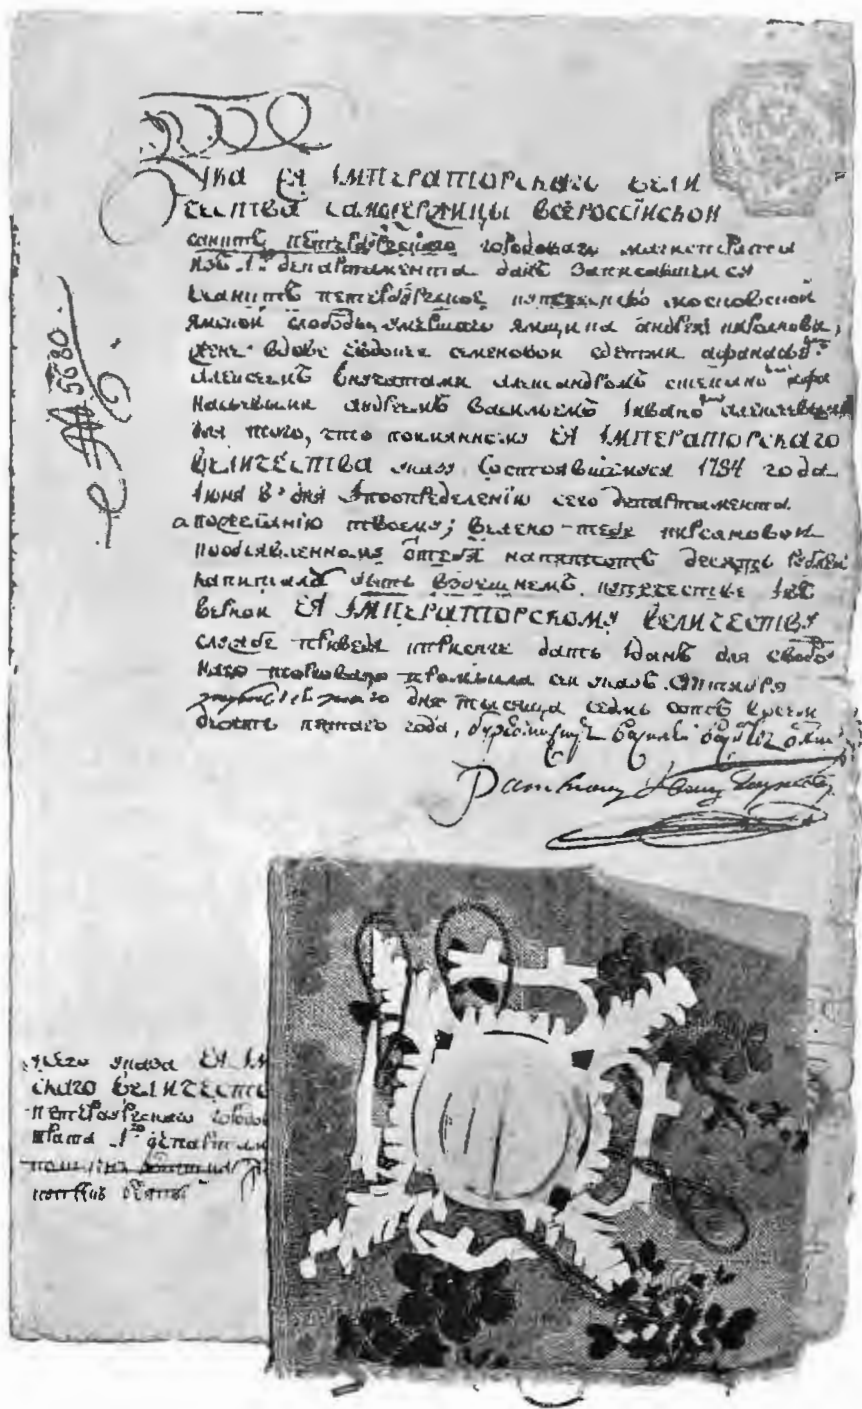 Указ ЕЯ IМПЕРАТОРСКАГО ВЕЛИ
ЧЕСТВА САМОДЕРЖИЦЫ ВСЕРОССIИСКОИ
санктъ петербургскаго городоваго магистрата
изъ 1го департамента данъ записавшеися
всанктъ петербургское купечество московскои
Ямскои слободы, умершаго ямщика андрея кирсанова,
жене вдове Евдокее семеновои сдетми афанасьемъ
алексеемъ внучатами александромъ степаномъ афа
насьевыми андреемъ васильемъ Iваномъ алексеевыми
для того, что поимянному ЕЯ IМПЕРАТОРСКАГО
ВЕЛИЧЕСТВА указу Состоявшемуся 1784 года
Iюня 8 дня Iпоопределенiю сего департамента
апожеланiю твоему; велено тебе кирсановои
пообъявленному отебя напятсотъ десять рублеи
капиталу быть вздешнемъ купечестве Iкъ
вернои ЕЯ IМПЕРАТОРСКОМУ ВЕЛИЧЕСТВУ
службе приведя кприсяге дать Iданъ для свобо
наго торговаго промысла сеи указъ. октября
дня тысяща седмь сотъ восем
десятъ пятаго года,
№ 5680
ЕЯ IМ
скаго ВЕЛИЧЕСТВ
петербургскаго городов
трата 1го департамен
взяты